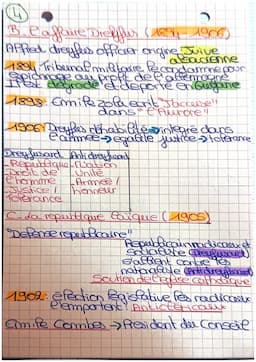 4
B. L'affaire Dreyfus (1894 - 1906)
Alfred dreyfus officer origine Juive
alsacienne
1894 Tribunal militaire le condamne pour
espionnage au profit de l'allemagne
Il est dégradé et déporté en Guyane
1898 Emile Zola ecrit "J'accuse"
dans "L'Aurore"
1906 Dreyfus réhabilité → intégré dans
l'armée → égalité justice → tolérance
Dreyfusard Antidreyfusard
- République - Nation
- Droit de - Unité
l'homme - Armée /
- Justice / honneur
tolérance
C. La republique laïque (1905)
"Défense republicaine"
Republicain radicaux et
socialiste (Dreyfusard)
s'allient contre les
nationaliste (Antidreyfusard)
Soutien de l'église catholique
1902 : élection législative les radicaux
l'emportent ! Anticléricaux
Emile Combes → President du Conseil